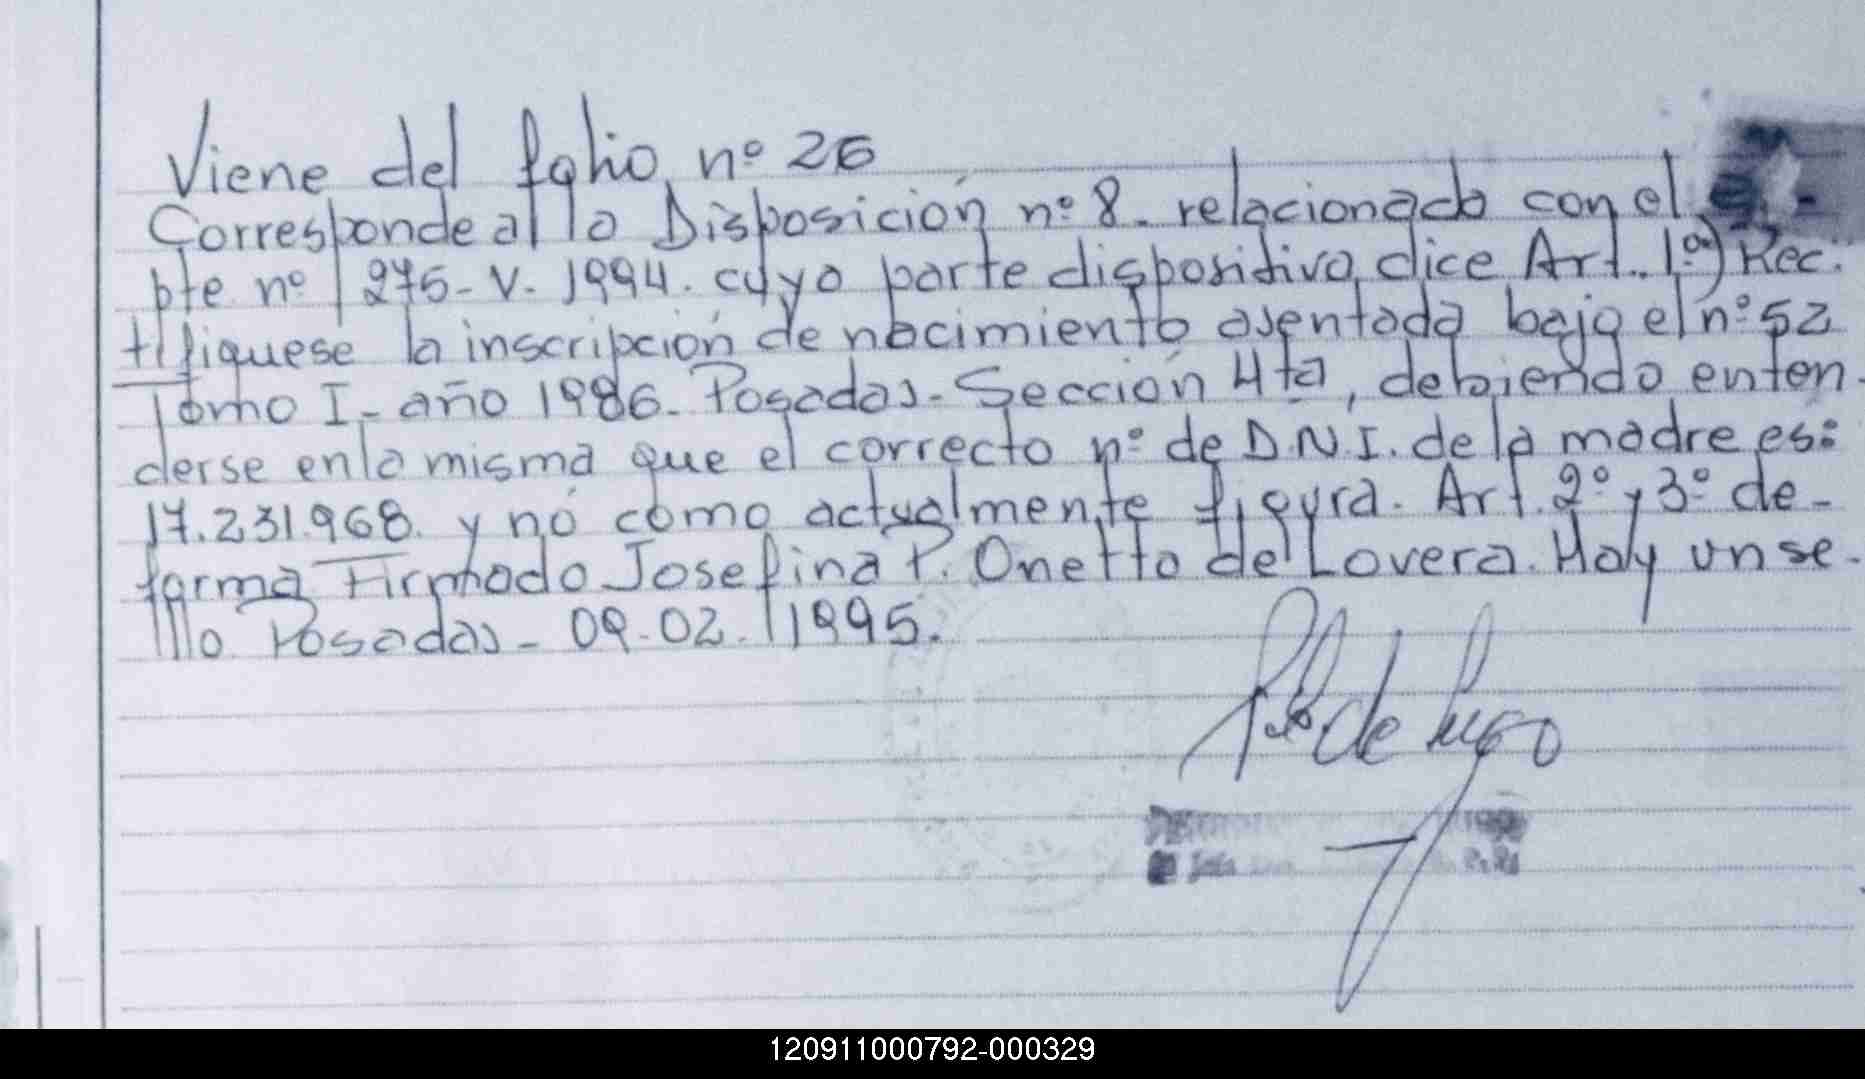 Viene del folio nº 26
Corresponde a la Disposición nº 8. relacionada con el
pte nº 1275-V-1994. cuya parte dispositiva dice Art. 1º) Rec.
tifiquese la inscripción de nacimiento asentada bajo el nº 52
Tomo I- año 1986- Posadas- Sección 4ta, debiendo enten-
derse en la misma que el correcto nº de D.N.I. de la madre es:
17.231.968. y nó como actualmente figura. Art. 2º y 3º de-
forma Firmado Josefina P. Onetto de Lovera. Hay un se-
llo Posadas- 09-02-1995.
de Lugo
120911000792-000329